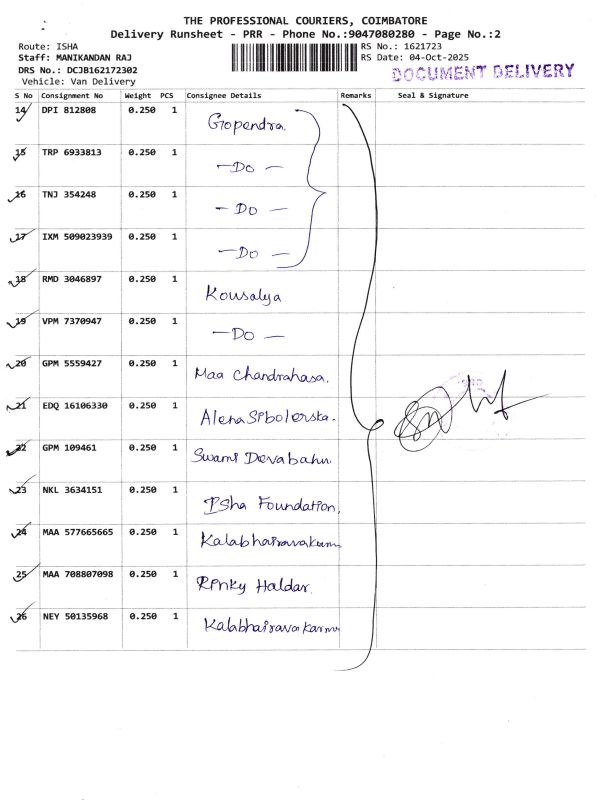 THE PROFESSIONAL COURIERS, COIMBATORE
Delivery Runsheet - PRR - Phone No.:9047080280 - Page No.:2
Route: ISHA RS No.: 1621723
Staff: MANIKANDAN RAJ RS Date: 04-Oct-2025
DRS No.: DCJB162172302 DOCUMENT DELIVERY
Vehicle: Van Delivery
S No Consignment No Weight PCS Consignee Details Remarks Seal & Signature
14 DPI 812808 0.250 1 Gopendra.
15 TRP 6933813 0.250 1 -Do -
16 TNJ 354248 0.250 1 - Do -
17 IXM 509023939 0.250 1 - Do -
18 RMD 3046897 0.250 1 Kousalya
19 VPM 7370947 0.250 1 -Do -
20 GPM 5559427 0.250 1 Maa Chandrahasa.
21 EDQ 16106330 0.250 1 Alena Sibolerska.
22 GPM 109461 0.250 1 Swami Devabahu.
23 NKL 3634151 0.250 1 Isha Foundation,
24 MAA 577665665 0.250 1 Kalabhairavakarma
25 MAA 708807098 0.250 1 Rinky Haldar.
26 NEY 50135968 0.250 1 Kalabhairava Karma